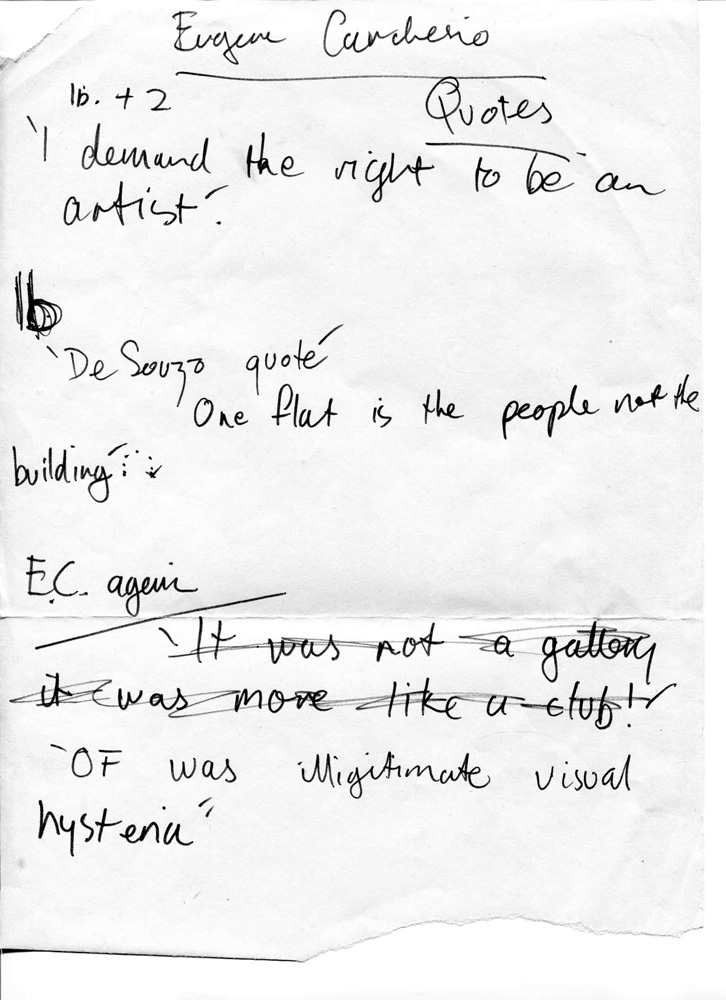 Eugene Carchesio
1b. + 2
Quotes
'I demand the right to be an
artist'.
1b
'De Souzo quote'
'One flat is the people not the
building'
E.C. again
'It was not a gallery
it was more like a club!'
'OF was illigitimate visual
hysteria'